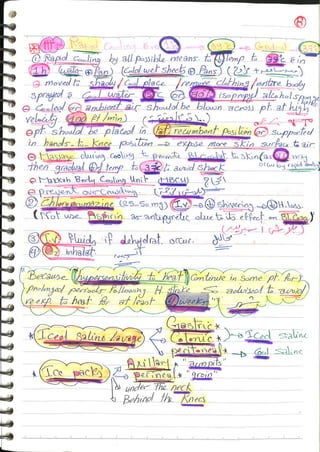 Rapid Cooling 39°c Gradual
① Rapid Cooling by all possible means to ↓ temp to 39°c in
1h (water + Fan) (Cold wet sheets + Fans)
moved to shady / Cool place / remove clothing / entire body
sprayed cool water or isopropyl alcohol sponge
Cooled or ambient air should be blown across pt at high
velocity (100 ft/min)
pt should be placed in lat recumbent position or supported
in hands-to-knee position → expose more skin surface to air
Massage during cooling to
then gradual ↓ temp to to avoid shock
Body Cooling Unit (MBCU)
prevent over Crowding
② Chlorpromazine (25-50 mg) I.V → ↓ shivering → ↓ H. loss
(Not use Aspirin as antipyretic due to its effect on Bl. Coag)
③ I.V fluids if dehydrat. occur.
④ O₂ inhalat.
"Because (hypersensitivity to heat) Continue in some pt. for
prolonged periods following H. stroke So advised to avoid
re exp. to heat for at least 4 weeks"
* Iced saline lavage Gastric Colonic → Iced saline
peritoneal → Cool Saline
* Ice packs Axillary "armpits"
perineal "groin"
under the neck
Behind the Knees